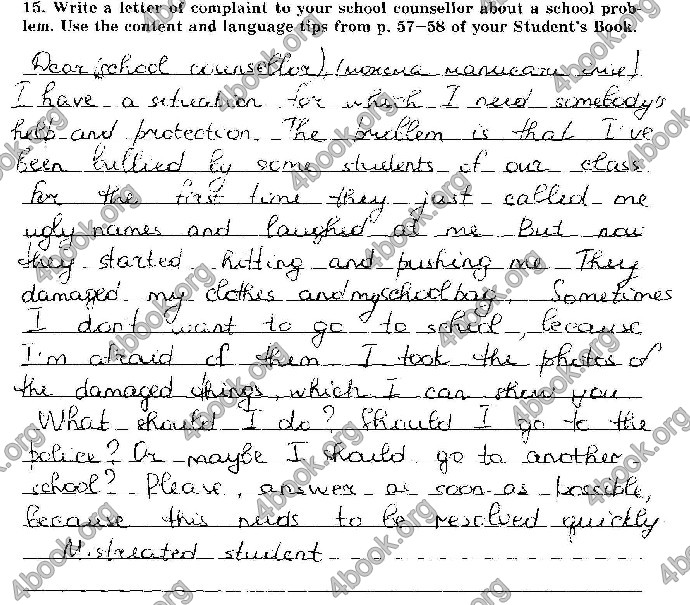 15. Write a letter of complaint to your school counsellor about a school prob-
lem. Use the content and language tips from p. 57–58 of your Student's Book.
Dear (school counsellor), (можна написати имя)
I have a situation for which I need somebody's
help and protection. The problem is that I've
been bullied by some students of our class
For the first time they just called me
ugly names and laughed at me But now
they started hitting and pushing me They
damaged my clothes and my school bag. Sometimes
I don't want to go to school, because
I'm afraid of them I took the photos of
the damaged things, which I can show you
What should I do? Should I go to the
police? Or maybe I should go to another
school? Please, answer as soon as possible,
because this needs to be resolved quickly
Mistreated student
4book.org